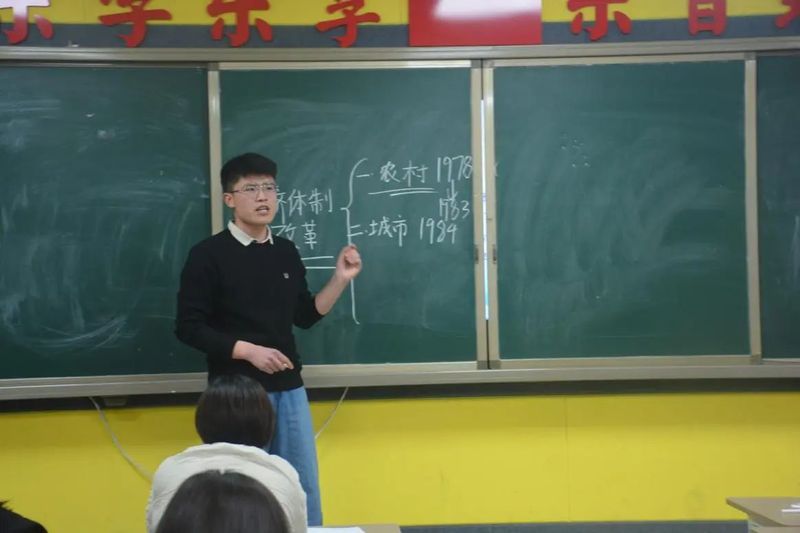 乐 学 乐 学 乐 音
一.农村 1978
济体制
1983
改革
二.城市 1984